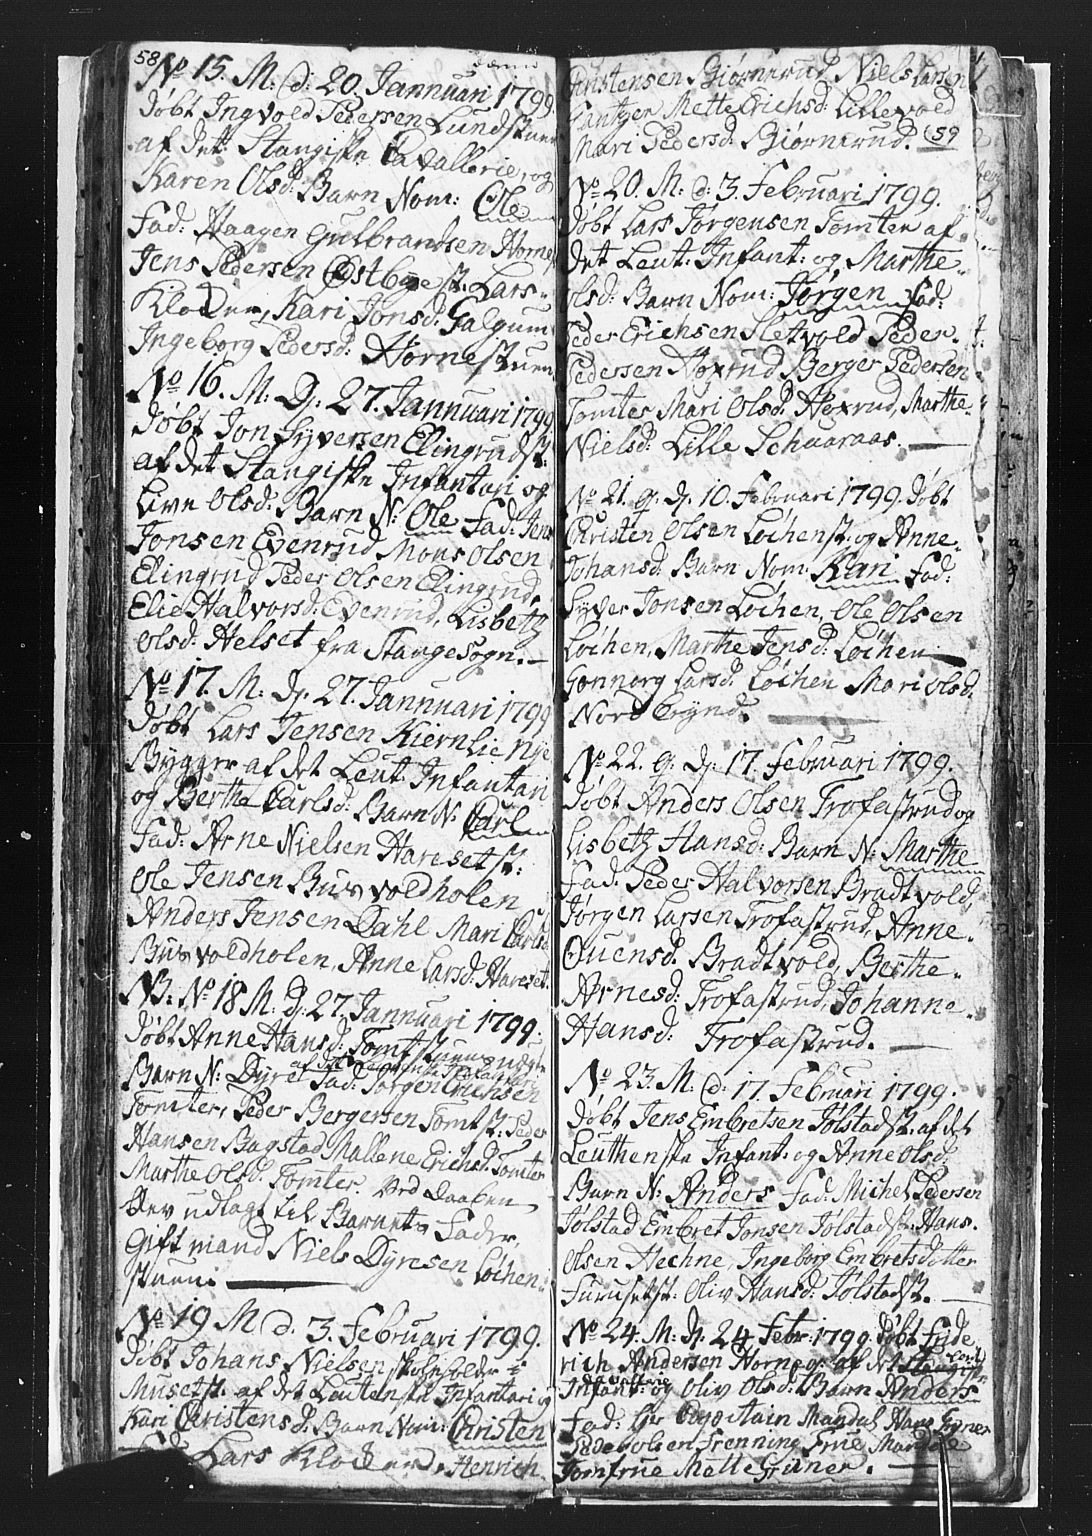 58
No 15. M: d: 20. Jannuari 1799
døbt Ingvold Pedersen Lundstuen
af dett Stangiske Cavallerie, og
Karen Olsd: Barn Nom: Ole
Fad: Haagen Gulbrandsen Horne
Jens Pedersen Østbye st: Lars
Kloden, Kari Jonsd: Galgum
Ingeborg Pedersd: Hornestuen
No 16. M: D: 27. Jannuari 1799
døbt Jon Syversen Elingrudst:
af det Stangiske Infantari og
Live Olsd: Barn N: Ole Fad: Jens
Jonsen Evenrud Mons Olsen
Elingrud Peder Olsen Elingrud,
Elie Halvorsd: Evenrud, Lisbeth
Olsd: Helset fra Stangesogn.
No 17. M: D: 27. Jannuari 1799
døbt Lars Jensen Kiernlie nye
Bygger af det Leut: Infantari
og Berthe Carlsd: Barn N: Carl
Fad: Arne Nielsen Haresetst:
Ole Jensen Buvoldholen
Anders Jensen Dahl Mari Carlsd:
Buvoldholen, Anne Larsd: Hareset.
NB: No 18 M: D: 27. Jannuari 1799.
døbt Anne Hansd: Tomtstuen
af det Leutenske Infanteri
Barn N: Dyre Fad: Jørgen Erichsen
Tomter, Peder Bergersen Tomtst: Peder
Hansen Bagstad Mallene Erichsd: Tomter
Marthe Olsd: Tomter. Ved Daaben
blev udlagt til Barnets Fader,
Gift mand Niels Dyresen Løchen
stuen
No 19 M d: 3. Februari 1799.
døbt Johans Nielsen skoleholder i
Musetst: af det Leutenske Infantari og
Kari Christensd: Barn Nom: Christen
Lars Kloden Henrich
Christensen Biørnerud Niels Larsen
Güntzen Mette Erichsd: Lillevold
Mari Pedersd: Biørnerud. 59
No 20. M: d: 3. Februari 1799.
døbt Lars Jørgensen Tomten af
det Leut: Infant: og Marthe
Olsd: Barn Nom: Jørgen Fad:
Peder Erichsen Sletvold Peder
Pedersen Hoxrud Berger Pedersen
Tomter Mari Olsd: Hexrud, Marthe
Nielsd: Lille Schaaraas.
No 21. g: D: 10. Februari 1799. døbt
Christen Olsen Løchenst: og Anne
Johansd: Barn Nom: Kari Fad:
Syver Jonsen Løchen, Ole Olsen
Løchen, Marthe Jensd: Løchen
Gonnorg Larsd: Løchen Mari Olsd:
Nord
No 22. g: D: 17. Februari 1799.
døbt Anders Olsen Trofastrud og
Lisbeth Hansd: Barn N: Marthe
Fad: Peder Halvorsen Bradtvold,
Jørgen Larsen Trofastrud, Anne
Ouensd: Bradtvold, Berthe
Arnesd: Trofastrud, Johanne
Hansd: Trofastrud.
No 23. M: d: 17. Februari 1799.
døbt Jens Embretsen Jølstadst: af det
Leuthenske Infant: og Anne Olsd:
Barn N: Anders Fad: Michel Pedersen
Jølstad Embret Jonsen Jølstadst: Hans
Olsen Hechne, Ingeborg Embretsdotter
Furusetst: Oliv Hansd: Jølstadst.
No 24. M: D: 24 Febr: 1799. døbt Fride
rich Andersen Horne og: af det Stangiske
Cavallerie
Infant: og Oliv Olsd: Barn Anders
Fad: Hr Capitain Mandal Hans Gryner
Peder Olsen Frenning Frue Mandale
Jomfrue Mette Grüner.